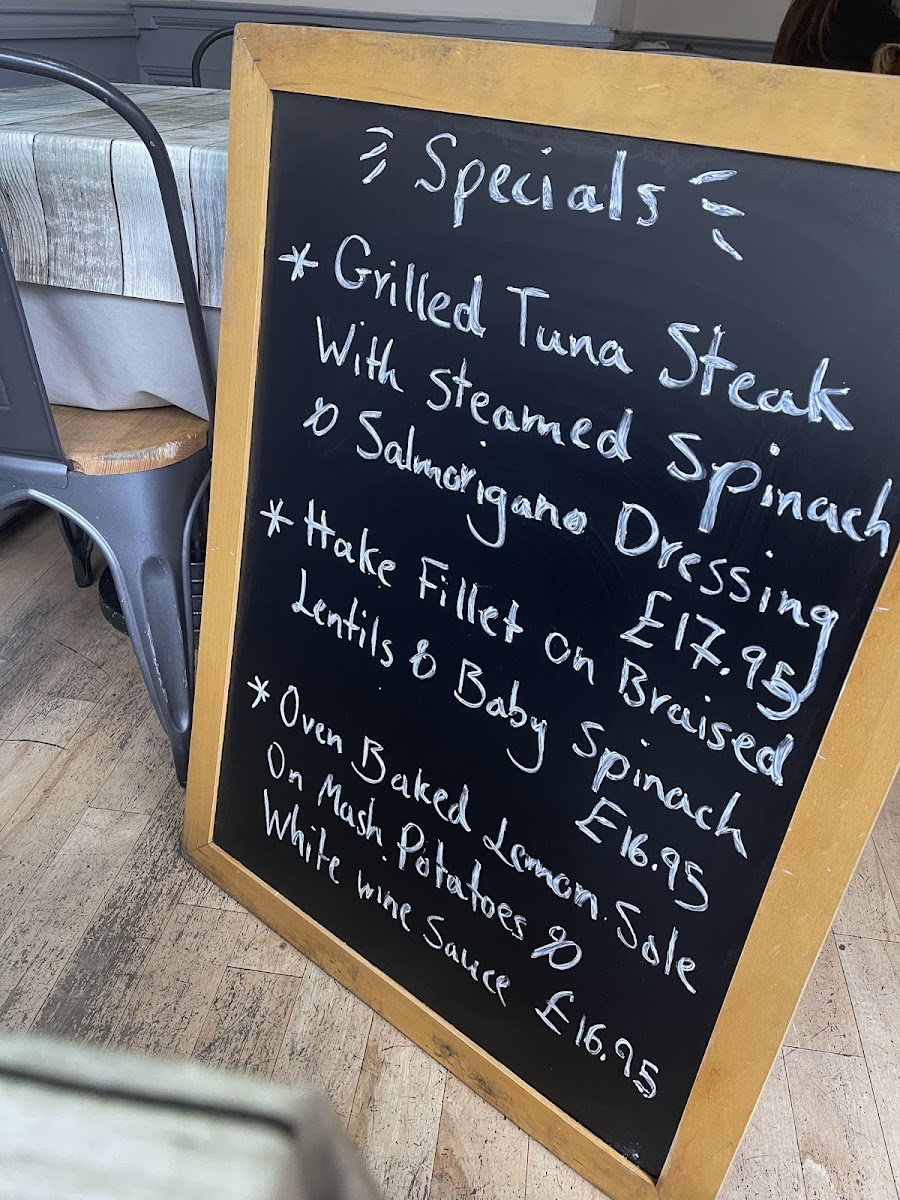 Specials
* Grilled Tuna Steak
With steamed spinach
& Salmorigano Dressing
£17.95
* Hake Fillet on Braised
Lentils & Baby spinach
£16.95
* Oven Baked Lemon Sole
On Mash Potatoes &
White wine Sauce £16.95